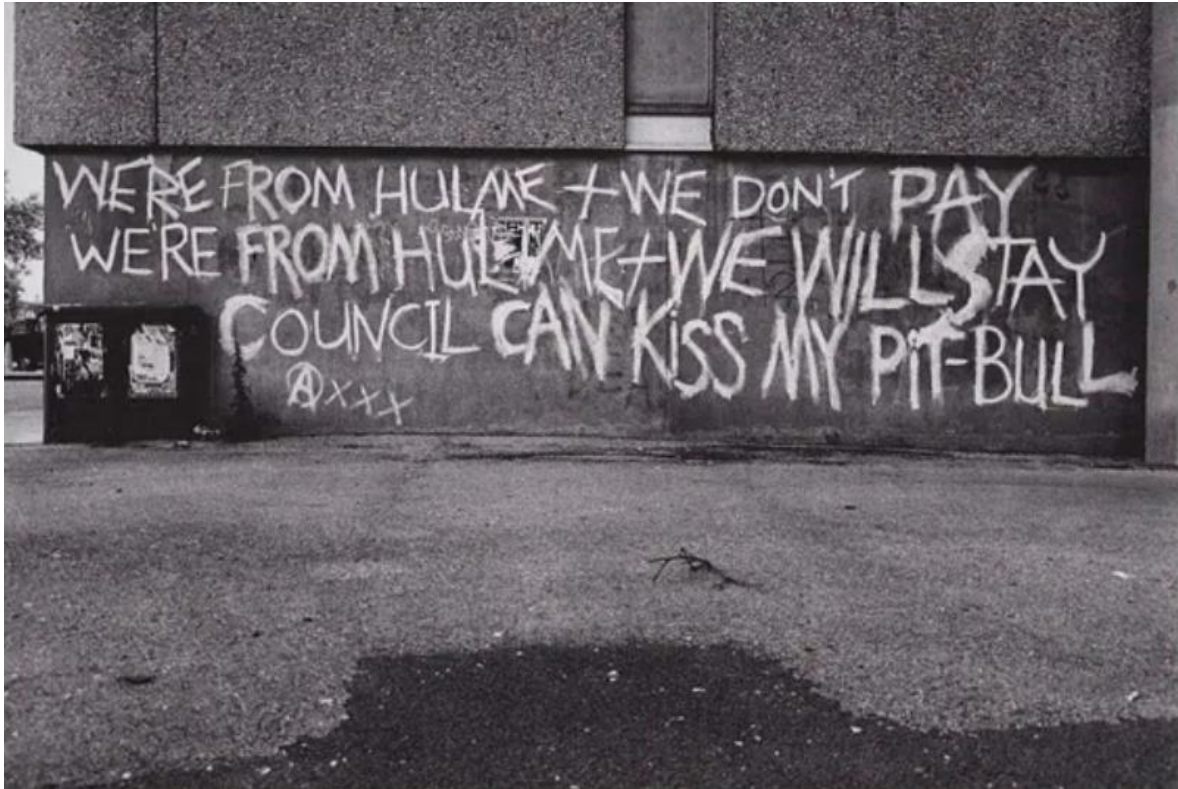 WE'RE FROM HULME + WE DON'T PAY
WE'RE FROM HULME + WE WILL STAY
COUNCIL CAN KISS MY PIT-BULL
Ⓐ xxx